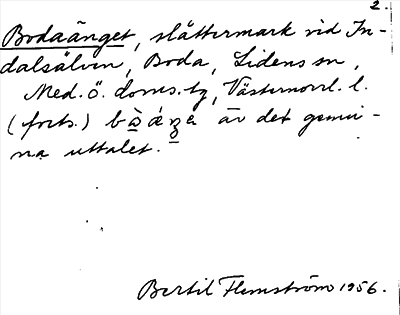 2.
Bodaänget, slåttermark vid In-
dalsälven, Boda, Lidens sn,
Med. ö. doms. tg, Västernorrl. l.
(forts.) är det genui-
na uttalet.
Bertil Flemström 1956.